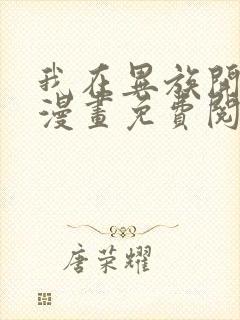 我在異族開
漫畫免費閱
唐荣耀